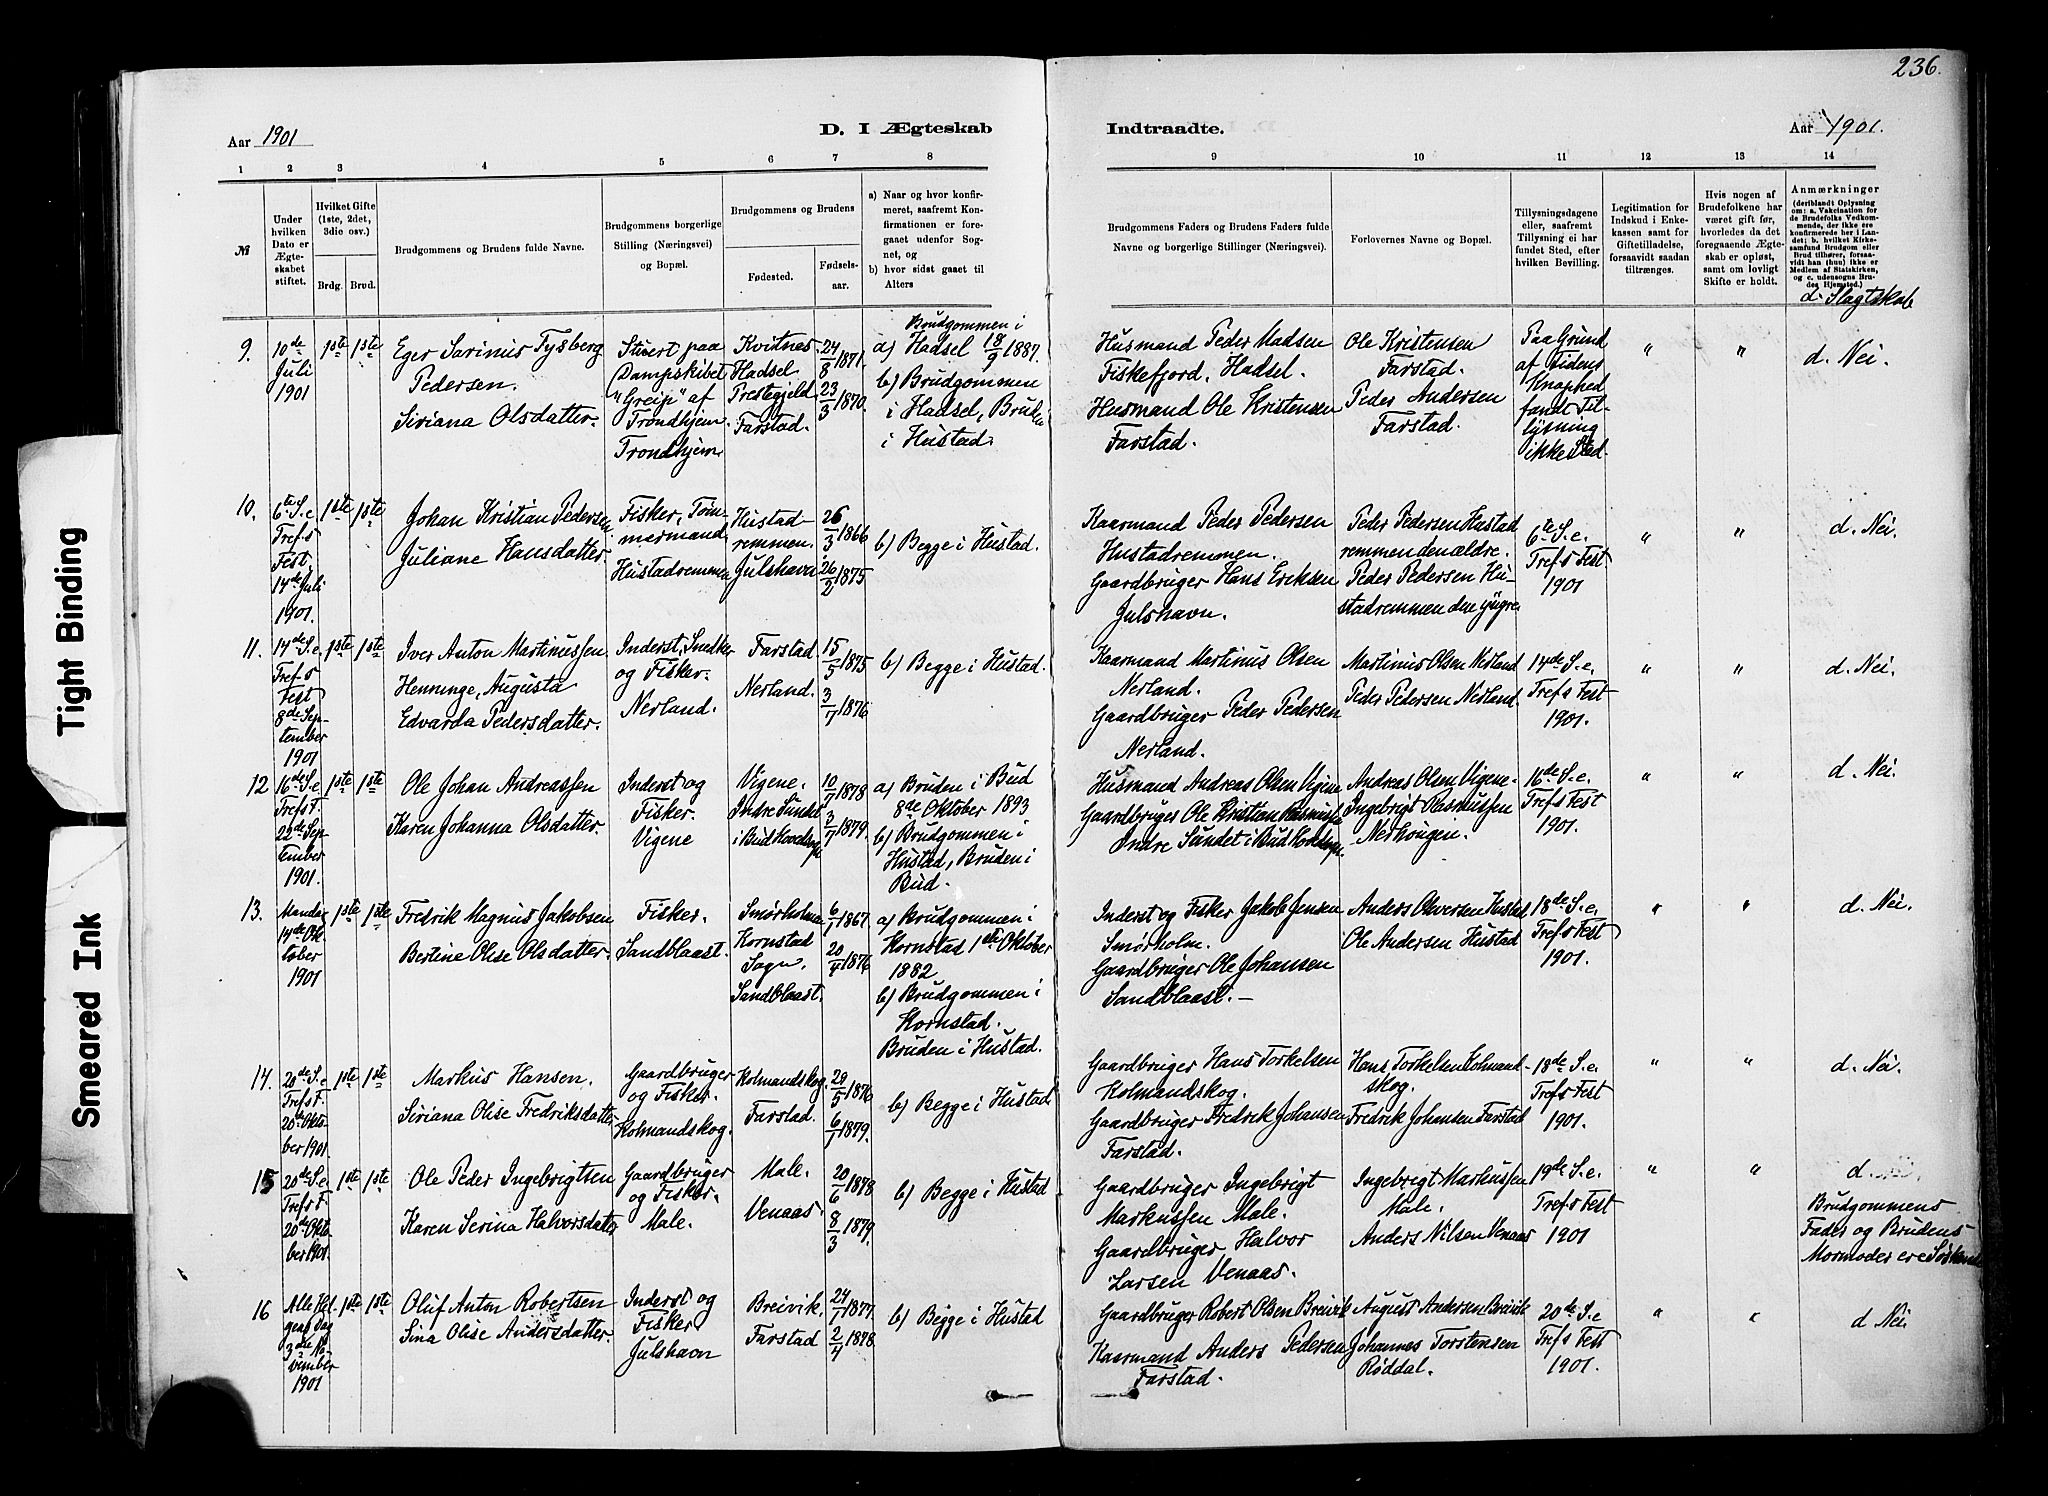 236.
Aar 1901
D. I Ægteskab
Indtraadte.
Aar 1901.
1 2 3 4 5 6 7 8
9 10 11 12 13 14
№
Under hvilken Dato er Ægteskabet stiftet.
Hvilket Gifte (1ste, 2det, 3die osv.)
Brdg. Brud.
Brudgommens og Brudens fulde Navne.
Brudgommens borgerlige Stilling (Næringsvei) og Bopæl.
Brudgommens og Brudens
Fødested.
Fødsels-aar.
a) Naar og hvor konfir-
meret, saafremt Kon-
firmationen er fore-
gaaet udenfor Sog-
net, og
b) hvor sidst gaaet til
Alters
Brudgommens Faders og Brudens Faders fulde
Navne og borgerlige Stillinger (Næringsvei).
Forlovernes Navne og Bopæl.
Tillysningsdagene
eller, saafremt
Tillysning ei har
fundet Sted, efter
hvilken Bevilling.
Legitimation for
Indskud i Enke-
kassen samt for
Giftetilladelse,
forsaavidt saadan
tiltrænges.
Hvis nogen af
Brudefolkene har
været gift før,
hvorledes da det
foregaaende Ægte-
skab er opløst,
samt om lovligt
Skifte er holdt.
Anmærkninger
(deriblandt Oplysning
om: a. Vakcination for
de Brudefolks Vedkom-
mende, der ikke ere
konfirmerede her i Lan-
det; b. hvilket Kirke-
samfund Brudgom eller
Brud tilhører, forsaa-
vidt han (hun) ikke er
Medlem af Statskirken,
og c. udensogns Bru-
des Hjemsted.)
d. Slagtskab
9.
10de
Juli
1901
1ste 1ste
Eger Sarinus Tysberg
Pedersen.
Siriana Olsdatter.
Stuert paa
Dampskibet
"Greip" af
Trondhjem.
Trondhjem
Kvitnes
Hadsel
Prestegjeld
Farstad.
24/8 1871.
23/3 1870.
Brudgommen i
a) Hadsel 18/9 1887.
b) Brudgommen
i Hadsel, Bruden
i Hustad.
Husmand Peder Madsen
Fiskefjord, Hadsel.
Husmand Ole Kristensen
Farstad.
Ole Kristensen
Farstad.
Peder Andersen
Farstad.
Paa Grund
af Tidens
Knaphed
fandt Til-
lysning
ikke Sted.
" "
d. Nei.
10.
6te S. e.
Tref s
Fest,
14de Juli
1901.
1ste 1ste
Johan Kristian Pedersen
Juliane Hansdatter.
Fisker, Tøm-
mermand,
Hustadremmen
Hustad-
remmen.
Julshavn
26/3 1866
26/2 1875
b) Begge i Hustad.
Kaarmand Peder Pedersen
Hustadremmen.
Gaardbruger Hans Eriksen
Julshavn.
Peder Pedersen Hustad
remmen den ældre.
Peder Pedersen Hu-
stadremmen den yngre
6te S. e.
Tref s Fest
1901
" "
d. Nei.
11.
14de S. e.
Tref s
Fest
8de Sep-
tember
1901
1ste 1ste
Iver Anton Martinussen
Henninge, Augusta
Edvarda Pedersdatter.
Inderst, Snedker
og Fisker.
Nerland.
Farstad.
Nerland.
15/5 1875
3/7 1876
b) Begge i Hustad.
Kaarmand Martinus Olsen
Nerland.
Gaardbruger Peder Pedersen
Nerland.
Martinus Olsen Nerland
Peder Pedersen Nerland.
14de S. e.
Tref s Fest
1901.
" "
d. Nei.
12
16de S. e
Tref s F.
22de Sep-
tember
1901.
1ste 1ste
Ole Johan Andreassen
Karen Johanna Olsdatter.
Inderst og
Fisker.
Vigene
Vigene.
Indre Sundet
i Bud Hovedsogn
10/7 1878
3/7 1879.
a) Bruden i Bud
8de Oktober 1893
b) Brudgommen i
Hustad, Bruden i
Bud.
Husmand Andreas Olsen Vigene
Gaardbruger Ole Kristian Rasmussen
Indre Sundet i Bud Hovedsogn.
Andreas Olsen Vigene.
Ingebrigt Rasmussen
Nerhougen.
16de S. e.
Tref s Fest
1901.
" "
d. Nei.
13.
Mandag
14de Ok-
tober
1901
1ste 1ste
Fredrik Magnus Jakobsen
Bertine Olise Olsdatter.
Fisker.
Sandblaast.
Smørholmen
Kornstad
Sogn.
Sandblaast.
6/1 1867.
20/4 1876
a) Brudgommen i
Kornstad 1ste Oktober
1882
b) Brudgommen i
Kornstad.
Bruden i Hustad.
Inderst og Fisker Jakob Jensen
Smørholm.
Gaardbruger Ole Johansen
Sandblaast. —
Anders Olversen Hustad
Ole Andersen Hustad
18de S. e.
Tref s Fest
1901.
" "
d. Nei.
14.
20de S. e
Tref s F.
20de Okto-
ber 1901.
1ste 1ste
Markus Hansen.
Siriana Olise Fredriksdatter
Gaardbruger
og Fisker.
Kolmandskog.
Kolmandskog.
Farstad.
29/5 1876
6/1 1879.
b) Begge i Hustad
Gaardbruger Hans Torkelsen
Kolmandskog.
Gaardbruger Fredrik Johansen
Farstad.
Hans Torkelsen Kolmand-
skog.
Fredrik Johansen Farstad
18de S. e.
Tref s Fest
1901.
" "
d. Nei.
15
20de S. e
Tref s F.
20de Okto-
ber 1901.
1ste 1ste
Ole Peder Ingebrigtsen
Karen Serina Halvorsdatter
Gaardbruger
og Fisker.
Male.
Male.
Venaas.
20/6 1878
8/3 1879.
b) Begge i Hustad
Gaardbruger Ingebrigt
Markussen Male.
Gaardbruger Halvor
Larsen Venaas.
Ingebrigt Markussen
Male.
Anders Nilsen Venaas
19de S. e.
Tref s Fest
1901
" "
d.
Brudgommens
Fader og Brudens
Mormoder ere Søskende
16
Alle Hel-
gens Dag
3die No-
vember
1901
1ste 1ste
Oluf Anton Robertsen
Sina Olise Andersdatter.
Inderst og
Fisker
Julshavn
Breivik.
Farstad
24/7 1877.
2/4 1878
b) Begge i Hustad
Gaardbruger Robert Olsen Breivik
Kaarmand Anders Pedersen
Farstad.
August Andersen Breivik
Johannes Torstensen
Røddal.
20de S. e
Tref s Fest
1901.
" "
d Nei
Tight Binding
Smeared Ink